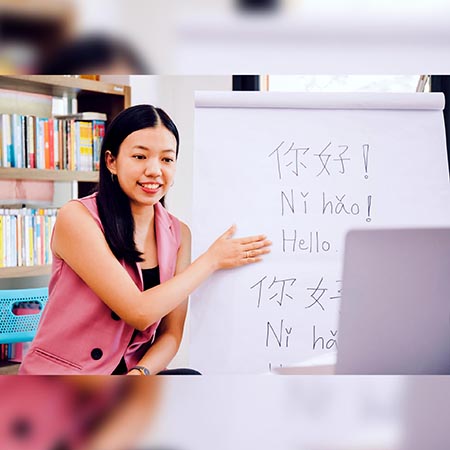 你好！
Nǐ hǎo!
Hello.
你好
Nǐ hǎ